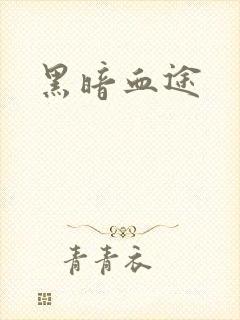 黑暗血途
青青衣